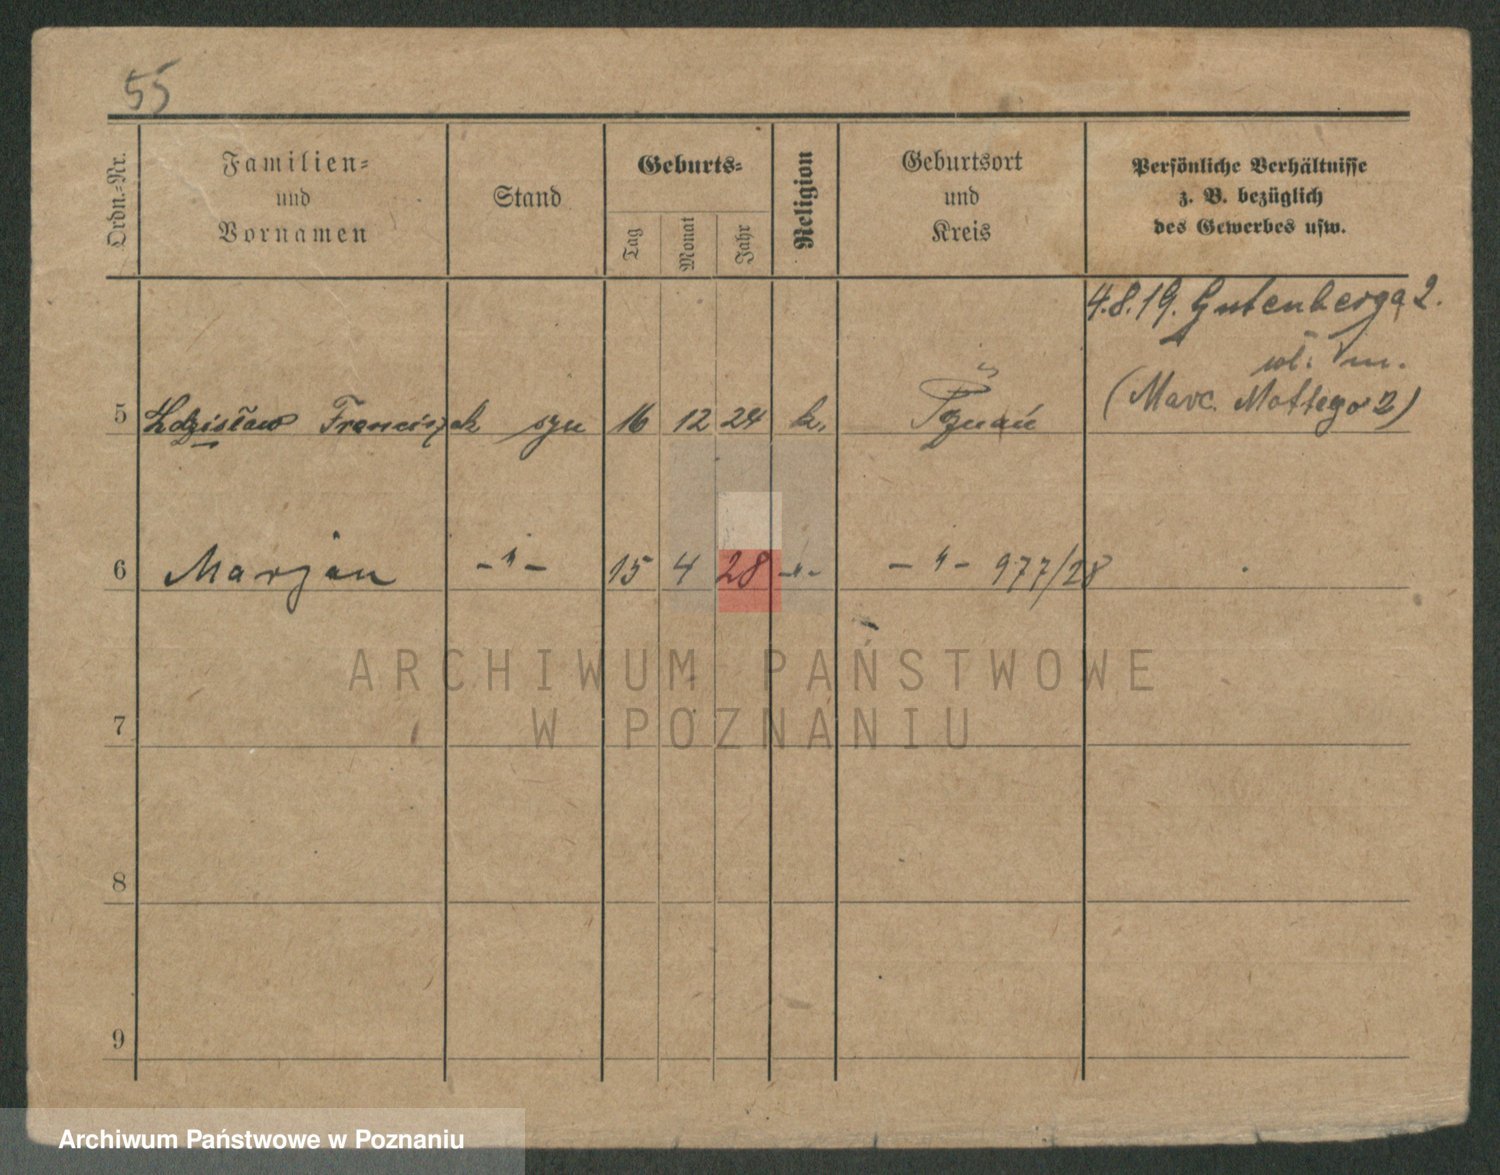 55
Ordn.-Nr.
Familien-
und
Vornamen
Stand
Geburts-
Tag
Monat
Jahr
Religion
Geburtsort
und
Kreis
Persönliche Verhältnisse
z. B. bezüglich
des Gewerbes usw.
4.8.19. Gutenberga 2.
wł. m.
(Marc. Mottego 2)
5 Zdzisław Franciszek syn 16 12 24 k. Poznań
6 Marjan -"- 15 4 28 -"- -"- 977/28
ARCHIWUM PAŃSTWOWE
W POZNANIU
7
8
9
Archiwum Państwowe w Poznaniu